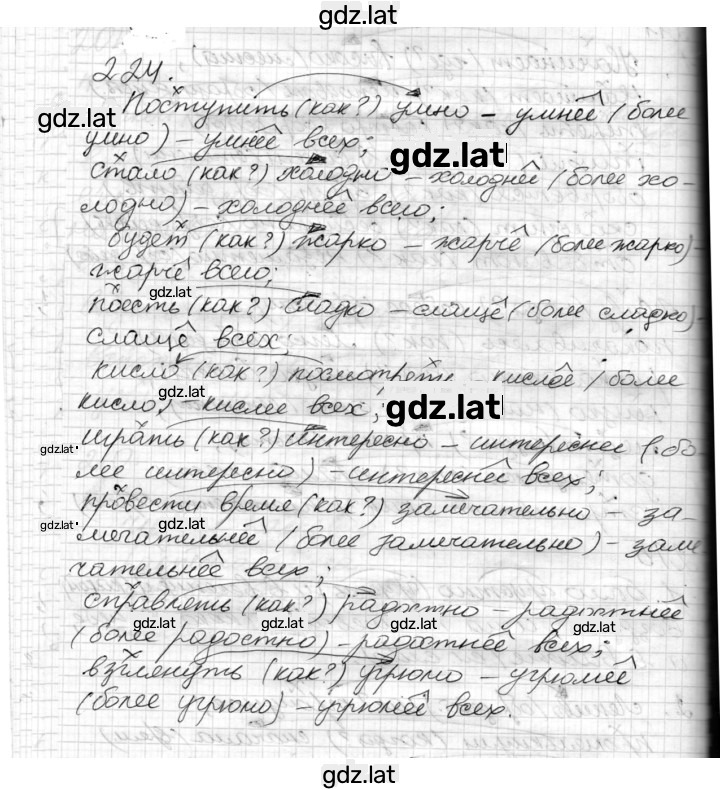 gdz.lat
224.
Поступить (как?) умно – умнее (более
gdz.lat
умно) – умнее всех;
gdz.lat
стало (как?) холодно – холоднее (более хо-
лодно) – холоднее всего;
будет (как?) жарко – жарче (более жарко) –
жарче всего;
gdz.lat
поесть (как?) сладко – слаще (более сладко) –
слаще всех;
кисло (как?) посмотреть – кислее (более
gdz.lat
кисло) – кислее всех;
gdz.lat
играть (как?) интересно – интереснее (бо-
gdz.lat
лее интересно) – интереснее всех;
провести время (как?) замечательно – за-
gdz.lat gdz.lat
мечательнее (более замечательно) – заме
чательнее всех;
справлять (как?) радостно – радостнее
gdz.lat gdz.lat gdz.lat
(более радостно) – радостнее всех;
взглянуть (как?) угрюмо – угрюмей
(более угрюмо) – угрюмее всех.
gdz.lat